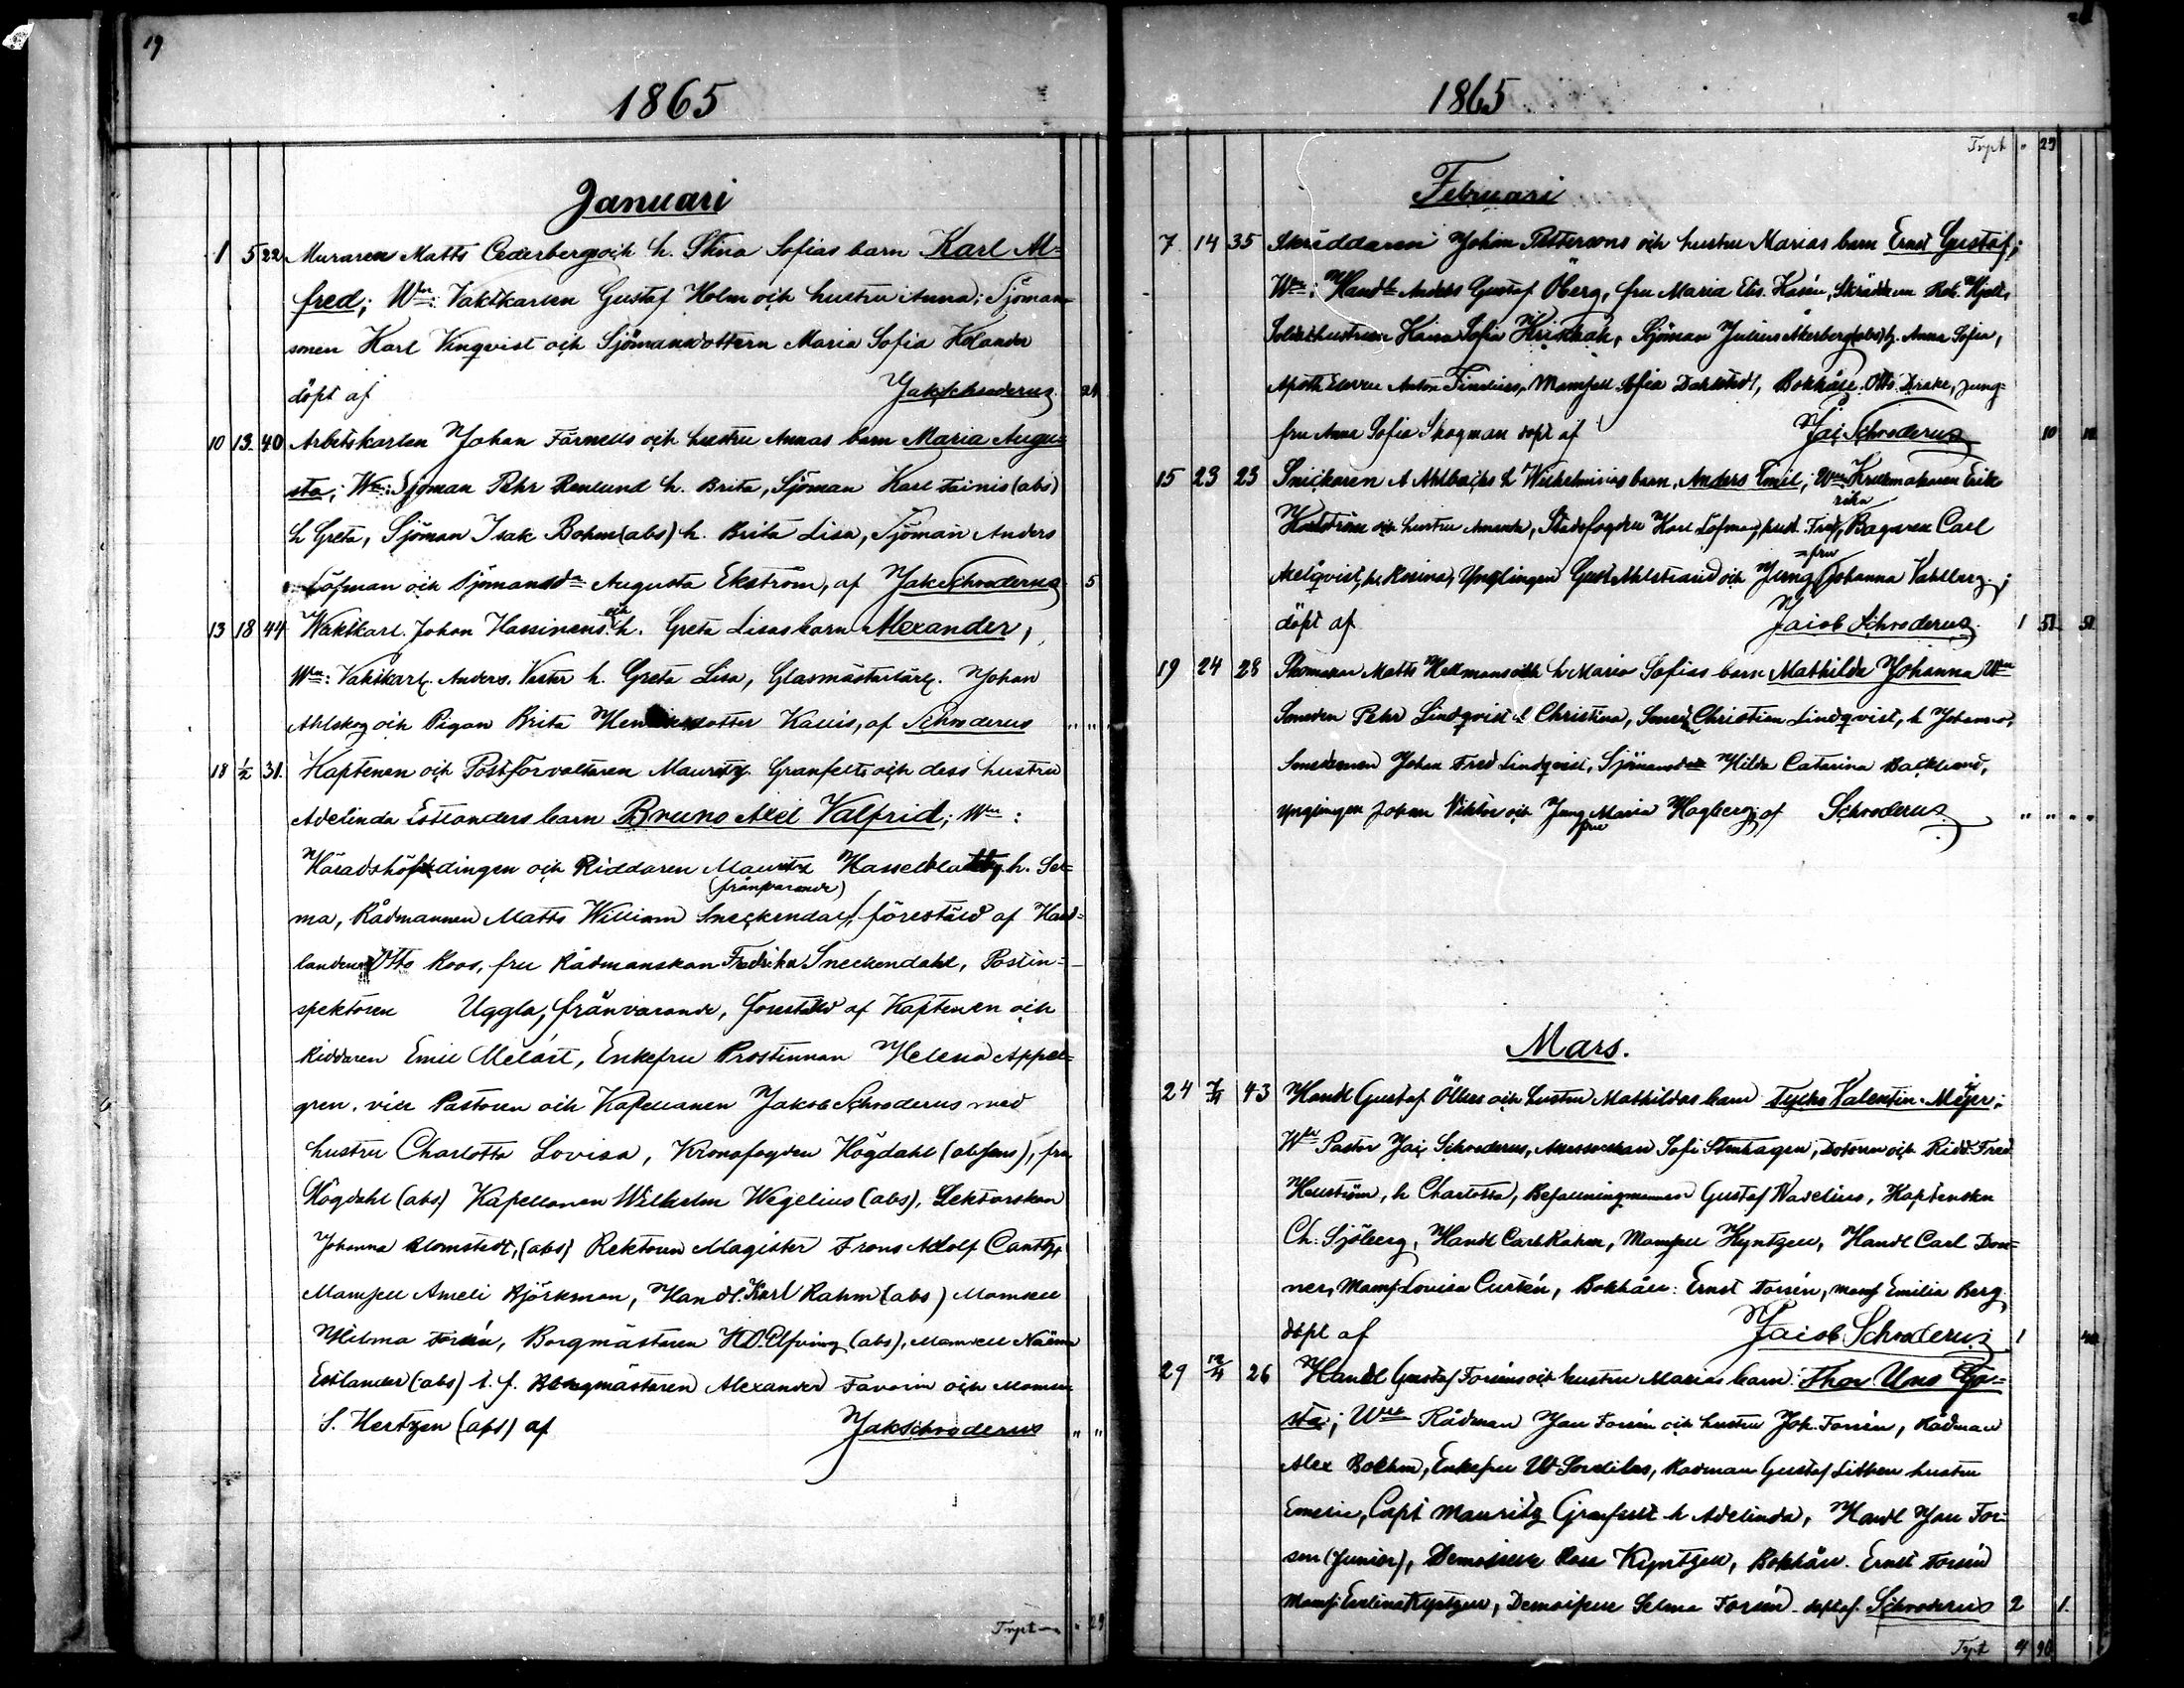 19
1865
Januari
1 5 22 Muraren Matts Cederberg och h. Stina Sofias barn Karl Al=
fred; Wn: Vaktkarlen Gustaf Holm och hustru Anna; Sjöman-
sonen Karl Vinqvist och Sjömansdottern Maria Sofia Holander
döpt af Jak Schroderus 24
10 13 40 Arbetskarlen Johan Färnells och hustru Annas barn Maria Augu=
sta; Wn: Sjöman Pehr Renlund h. Brita, Sjöman Karl Tainis (abs)
h Greta, Sjöman Isak Bohm (abs) h. Brita Lisa, Sjöman Anders
Löfman och Sjömansd. Augusta Ekström, af Jak Schroderus 5
13 18 44 Waktkarl. Johan Hassinens och h. Greta Lisas barn Alexander,
Wn: Vaktkarl. Anders Vester h. Greta Lisa, Glasmästarlärl. Johan
Ahlskog och Pigan Brita Henriksdotter Kallis, af Schroderus " "
18 1/2 31. Kaptenen och Postförvaltaren Mauritz Granfelts och dess hustru
Adelinda Estlanders barn Bruno Axel Valfrid; Wn:
Häradshöfdingen och Riddaren Mauritz Hasselblatt, h. Sel=
ma, Rådmannen Matts William Sneckendahl, (frånvarande) förestäld af Hand=
landen Otto Roos, fru Rådmanskan Fredrika Sneckendahl, Postin=
spektoren Uggla, frånvarande, förestäld af Kaptenen och
Riddaren Emil Melart, Enkefru Prostinnan Helena Appel=
gren. vice Pastoren och Kapellanen Jakob Schroderus med
hustru Charlotta Lovisa, Kronofogden Högdahl (absens), fru
Högdahl (abs) Kapellanen Wilhelm Wegelius (abs), Lektorskan
Johanna Blomstedt, (abs) Rektoren Magister Frans Adolf Cantz,
Mamsell Ameli Björkman, Handl. Karl Rahm (abs) Mamsell
Hilma Forsén, Borgmästaren H.D. Elfving (abs), Mamsell Naëma
Estlander (abs) t. f. Borgmästaren Alexander Favorin och Mamsell
S. Hertzen (abs) af Jak Schroderus " "
Trpt " 29
1865
Trpt " 29
Februari
7 14 35 Skräddaren Johan Pettersons och hustru Marias barn Ernst Gustaf;
Wn: Handl. Anders Gustaf Öberg, fru Maria Elis. Hasén, Skräddaren Rob. Hjelt,
Soldathustrun Kaisa Sofia Krickhak, Sjöman Julius Åkerberg (abs) h. Anna Sofia,
Apoth. Eleven Anton Findeius, Mamsell Sofia Dahlstedt, Bokhåll. Otto Drake, Jung=
fru Anna Sofia Skogman döpt af Jac Schroderus 10 10
15 23 23 Snickaren A Ahlbacks h Wilhelminas barn, Anders Emil; Wn Krukmakaren Erik
Hallström och hustru Amanda, Stadsfogden Karl Löfman, hust. Fredrika, Bagaren Carl
Axelqvist, h. Rosina, Ynglingen Gust Ahlstrand och Jungfru Johanna Vahlberg;
döpt af Jacob Schroderus 1 51 51
19 24 28 Skomakar Matts Hellmans och h Maria Sofias barn Mathilda Johanna Wn
Smeden Pehr Lindqvist h Christina, Smeden Christian Lindqvist, h Johanna,
Smedsonen Johan Fred Lindqvist, Sjömansd. Hilda Catarina Backlund,
ynglingen Johan Viktor och Jungfru Maria Hagberg; af Schroderus " " " "
Mars.
24 7/4 43 Handl Gustaf Öllers och hustru Mathildas barn Tycho Valentin Mejer;
Wn Pastor Jac Schroderus, Assessorskan Sofi Stenhagen, Doktoren och Ridd. Fred
Hellström, h Charlotta, Befallningsmannen Gustaf Naselius, Kaptenskan
Ch. Sjöberg, Handl Carl Rahm, Mamsell Kyntzell, Handl Carl Don=
ner, Mams Lovisa Curtén, Bokhåll: Ernst Forsén, Mams Emilia Berg
döpt af Jacob Schroderus 1
29 12/4 26 Handl Gustaf Forséns och hustru Marias barn Thor Uno Gö=
sta; Wn Rådman Jan Forsén och hustru Joh. Forsén, Rådman
Alex Boehm, Enkefru W Sordelas, Rådman Gustaf Libben hustru
Emelie, Capt Mauritz Granfelt h Adelinda, Handl Jan For=
sen (Junior), Demoiselle Rose Kyntzell, Bokhåll. Ernst Forsén
Mams. Evelina Kyntzell, Demoiselle Selma Forsén döpt af Schroderus 2 1.
Trpt 4 90